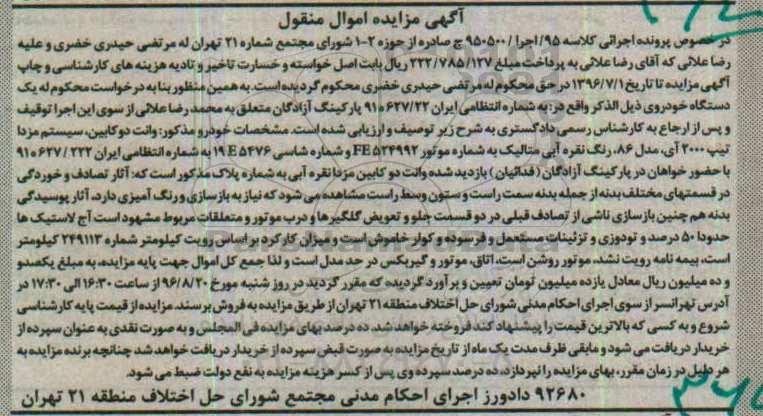 آگهی مزایده اموال منقول
در خصوص پرونده اجرائی کلاسه ۹۵/اجرا/۹۵۰۵۰۰ ج صادره از حوزه ۲-۱۰ شورای مجتمع شماره ۲۱ تهران له مرتضی حیدری خضری و علیه
رضا علائی که آقای رضا علائی به پرداخت مبلغ ۲۲۲/۷۸۵/۱۲۷ ریال بابت اصل خواسته و خسارت تاخیر و تادیه هزینه های کارشناسی و چاپ
آگهی مزایده تا تاریخ ۱۳۹۶/۷/۱ در حق محکوم له مرتضی حیدری خضری محکوم گردیده است. به همین منظور بنا به درخواست محکوم له یک
دستگاه خودروی ذیل الذکر واقع در: به شماره انتظامی ایران ۶۲۷/۲۲ ه ۹۱ پارکینگ آزادگان متعلق به محمد رضا علائی از سوی این اجرا توقیف
و پس از ارجاع به کارشناس رسمی دادگستری به شرح زیر توصیف و ارزیابی شده است. مشخصات خودرو مذکور: وانت دوکابین، سیستم مزدا
تیپ ۲۰۰۰ آی، مدل ۸۶، رنگ نقره آبی متالیک به شماره موتور FE ۵۲۴۹۹۲ و شماره شاسی ۱۹ E ۵۴۷۶ به شماره انتظامی ایران ۲۲۲ / ۶۲۷ ه ۹۱
با حضور خواهان در پارکینگ آزادگان (فدائیان) بازدید شده وانت دو کابین مزدا نقره آبی به شماره پلاک مذکور است که: آثار تصادف و خوردگی
در قسمتهای مختلف بدنه از جمله بدنه سمت راست و ستون وسط راست مشاهده می شود که نیاز به بازسازی و رنگ آمیزی دارد، آثار پوسیدگی
بدنه هم چنین بازسازی ناشی از تصادف قبلی در دو قسمت جلو و تعویض گلگیرها و درب موتور و متعلقات مربوط مشهود است آج لاستیک ها
حدودا ۵۰ درصد و تودوزی و تزئینات مستعمل و فرسوده و کولر خاموش است و میزان کارکرد بر اساس رویت کیلومتر شماره ۲۴۹۱۱۳ کیلومتر
است، بیمه نامه رویت نشد، موتور روشن است، اتاق، موتور و گیربکس در حد مدل است و لذا جمع کل اموال جهت پایه مزایده، به مبلغ یکصدو
و ده میلیون ریال معادل یازده میلیون تومان تعیین و برآورد گردیده که مقرر گردید در روز شنبه مورخ ۹۶/۸/۲۰ از ساعت ۱۶:۳۰ الی ۱۷:۳۰ در
آدرس تهرانسر از سوی اجرای احکام مدنی شورای حل اختلاف منطقه ۲۱ تهران از طریق مزایده به فروش برسند. مزایده از قیمت پایه کارشناسی
شروع و به کسی که بالاترین قیمت را پیشنهاد کند فروخته خواهد شد. ده درصد بهای مزایده فی المجلس و به صورت نقدی به عنوان سپرده از
خریدار دریافت می شود و مابقی ظرف مدت یک ماه از تاریخ مزایده به صورت قبض سپرده از خریدار دریافت خواهد شد چنانچه برنده مزایده به
هر دلیل در زمان مقرر، بهای مزایده را نپردازد، ده درصد سپرده وی پس از کسر هزینه مزایده به نفع دولت ضبط می شود.
۹۲۶۸۰ دادورز اجرای احکام مدنی مجتمع شورای حل اختلاف منطقه ۲۱ تهران